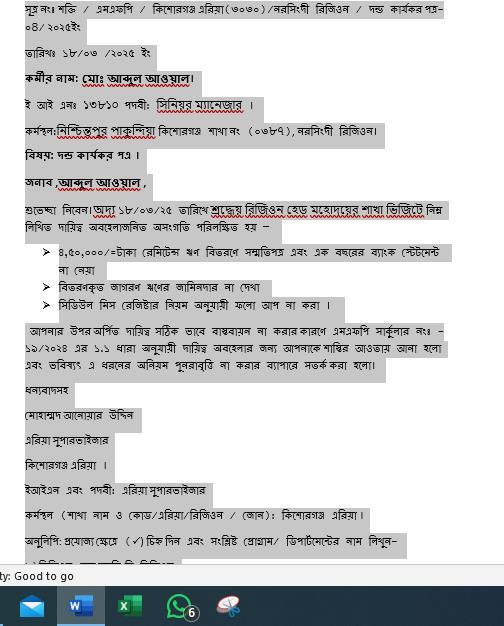 সূত্র নংঃ শক্তি / এমএফপি / কিশোরগঞ্জ এরিয়া(৩০৩০)/নরসিংদী রিজিওন / দন্ড কার্যকর পত্র-
০৪/ ২০২৫ইং
তারিখঃ ১৮/০৩ /২০২৫ ইং
কর্মীর নাম: মোঃ আব্দুল আওয়াল।
ই আই এনঃ ১৩৮১০ পদবী: সিনিয়র ম্যানেজার ।
কর্মস্থল:নিশ্চিন্তপুর পাকুন্দিয়া কিশোরগঞ্জ শাখা নং (০৩৮৭), নরসিংদী রিজিওন।
বিষয়: দন্ড কার্যকর পত্র ।
জনাব ,আব্দুল আওয়াল ,
শুভেচ্ছা নিবেন।অদ্য ১৮/০৩/২৫ তারিখে শ্রদ্ধেয় রিজিওন হেড মহোদয়ের শাখা ভিজিটে নিম্ন
লিখিত দায়িত্ব অবহেলাজনিত অসংগতি পরিলক্ষিত হয় –
➤ ৪,৫০,০০০/=টাকা রেমিটেন্স ঋণ বিতরণে সম্মতিপত্র এবং এক বছরের ব্যাংক স্টেটমেন্ট
না নেয়া
➤ বিতরণকৃত জাগরণ ঋণের জামিনদার না দেখা
➤ সিডিউল মিস রেজিষ্টার নিয়ম অনুযায়ী ফলো আপ না করা ।
আপনার উপর অর্পিত দায়িত্ব সঠিক ভাবে বাস্তবায়ন না করার কারণে এমএফপি সার্কুলার নংঃ -
১৯/২০২৪ এর ১.১ ধারা অনুযায়ী দায়িত্ব অবহেলার জন্য আপনাকে শাস্তির আওতায় আনা হলো
এবং ভবিষ্যৎ এ ধরনের অনিয়ম পুনরাবৃত্তি না করার ব্যাপারে সতর্ক করা হলো।
ধন্যবাদসহ
মোহাম্মদ আনোয়ার উদ্দিন
এরিয়া সুপারভাইজার
কিশোরগঞ্জ এরিয়া ।
ইআইএন এবং পদবী: এরিয়া সুপারভাইজার
কর্মস্থল (শাখা নাম ও কোড/এরিয়া/রিজিওন / জোন): কিশোরগঞ্জ এরিয়া।
অনুলিপি: প্রযোজ্য ক্ষেত্রে (✓) চিহ্ন দিন এবং সংশ্লিষ্ট প্রোগ্রাম/ ডিপার্টমেন্টের নাম লিখুন-
ty: Good to go
6